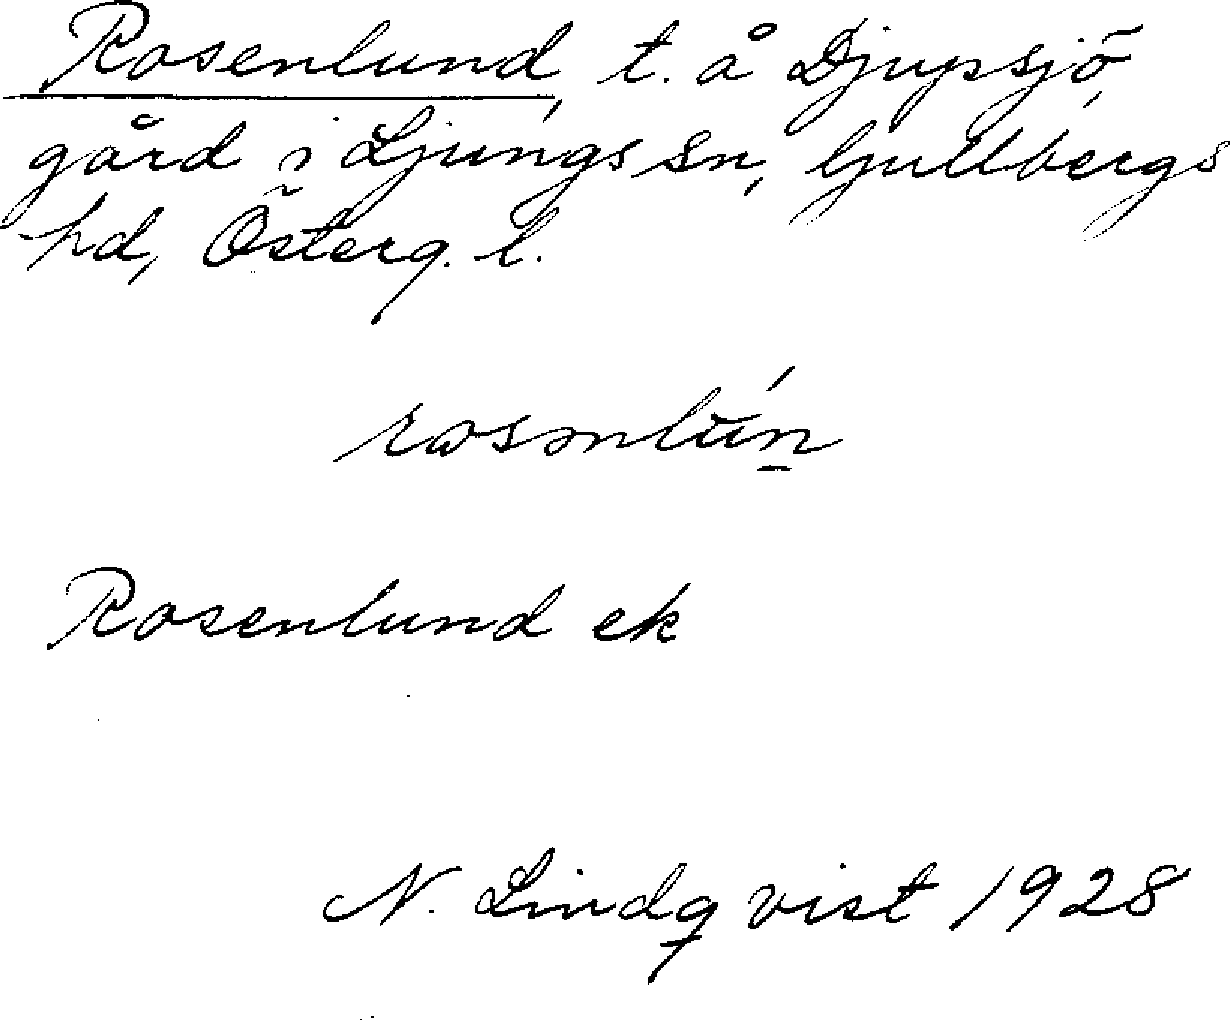 Rosenlund, t. å Djupsjö,
gård i Ljungs sn, Gullbergs
hd, Österg. l.
rosənlún
Rosenlund ek
N. Lindqvist 1928